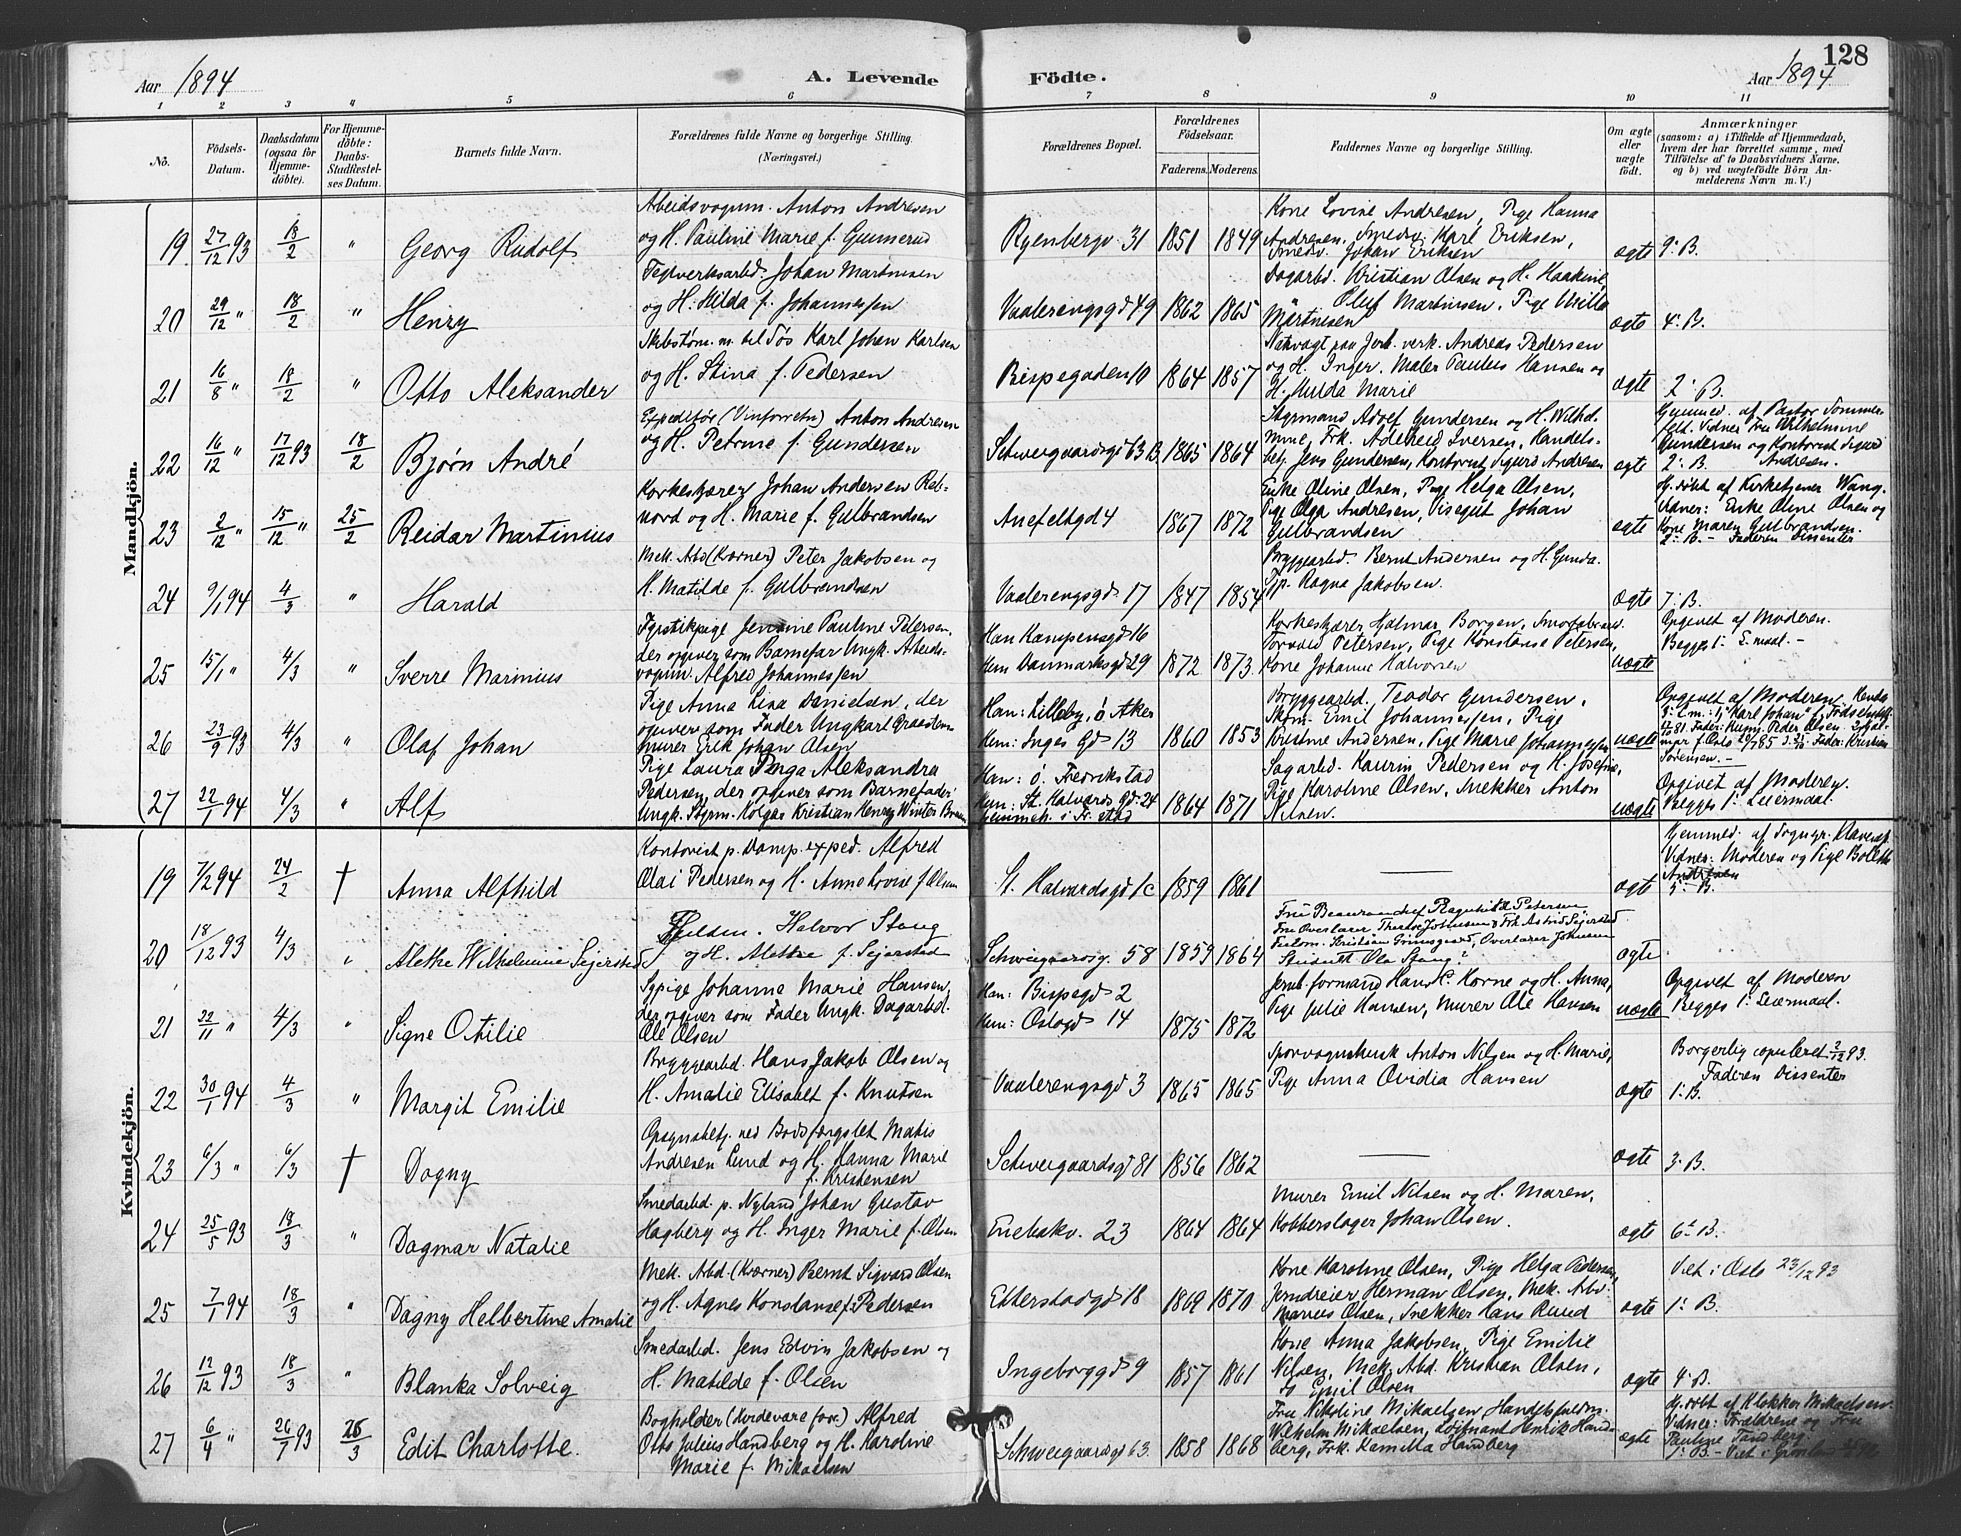 Aar 1894
A. Levende
Födte.
Aar 1894.
128
1 2 3 " 5 6 7 8 9 10 11
No.
Födsels-
Datum.
Daabsdatum
(ogsaa for
Hjemme-
döbte).
For Hjemme-
döbte:
Daabs-
Stadfæstel-
ses Datum.
Barnets fulde Navn.
Forældrenes fulde Navne og borgerlige Stilling.
(Næringsvei.)
Forældrenes Bopæl.
Forældrenes
Födselsaar.
Faderens. Moderens.
Faddernes Navne og borgerlige Stilling.
Om ægte
eller
uægte
födt.
Anmærkninger
(saasom: a) i Tilfælde af Hjemmedaab,
hvem der har forrettet samme, med
Tilföielse af to Daabsvidners Navne,
og b) ved uægtefödte Börn An-
melderens Navn m. V.)
Mandkjön.
19 27/12 93 18/2 " Georg Rudolf
Arbeidsvogm. Anton Andresen
og H. Pauline Marie f. Gunnerud
Ryenbergv. 31 1851 1849
Kone Lovise Andresen, Pige Hanna
Andresen, Smedsv. Karl Eriksen,
Smedsv. Johan Eriksen
ægte 9. B.
20 29/12 " 18/2 " Henry
Teglverksarbd. Johan Martinsen
og H. Hilda f. Johannessen
Vaalerengsgd 49 1862 1865
Dagarbd. Kristian Olsen og H. Haakine,
Oluf Martinsen, Pige Milla
Martinsen
ægte 4. B.
21 16/8 " 18/2 " Otto Aleksander
Skibstøm. m. til Søs Karl Johan Karlsen
og H. Stina f. Pedersen
Bispegaden 10 1864 1857
Natvagt paa Jerb. verk. Andreas Pedersen
og H. Inger, Maler Paulus Hansen og
H. Hulda Marie
ægte 2. B.
22 16/12 " 17/12 93 18/2 Bjørn André
Expeditør (Vinforretn) Anton Andresen
og H. Petrine f. Gundersen
Schweigaardsgd 63 B 1865 1864
Styrmand Adolf Gundersen og H. Wilhel-
mine, Frk. Adelheid Iversen, Handels-
betj. Jens Gundersen, Kontorist Sigurd Andresen
ægte
Hjemmed. af Pastor Sommer-
felt. Vidner Fru Wilhelmine
Gundersen og Kontorist Sigurd
2. B. Andresen.
23 2/12 " 15/12 " 25/2 Reidar Martinius
Korkeskjærer Johan Andersen Reb-
nord og H. Marie f. Gulbrandsen
Anefeltgd 4 1867 1872
Enke Oline Olsen, Pige Helga Olsen,
Pige Olga Andresen, Visegut Johan
Gulbrandsen
ægte
Hj. døbt af Kirketjener Wang.
Vidner: Enke Oline Olsen og
Kone Maren Gulbrandsen.
2. B. - Faderen Dissenter
24 9/1 94 4/3 " Harald
Mek. Arbd (Kærner) Peter Jakobsen og
H. Matilde f. Gulbrandsen
Vaalerengsgd. 17 1847 1854
Bryggearbd. Bernt Andersen og H. Gunda.
Syp. Ragna Jakobsen.
ægte 7. B.
25 15/1 " 4/3 " Sverre Marinius
Fyrstikpige Jensine Pauline Petersen,
der opgiver som Barnefar Ungk. Arbeids-
vogm. Alfred Johannessen
Han Kampensgd 16
Hun Danmarksgd 29 1872 1873
Korkeskjærer Hjalmar Borgen,
Torvald Petersen, Pige Konstanse Petersen,
Kone Johanne Halvorsen
uægte
Opgivet af Moderen.
Begges 1. L.maal. -
26 23/9 93 4/3 " Olaf Johan
Pige Anna Lisa Danielsen, der
opgiver som Fader Ungkarl Graastens
murer Erik Johan Olsen
Han: Lilleby, ø. Aker
Hun: Inges Gd 13 1860 1853
Bryggearbd. Teodor Gundersen,
Skom. Emil Johannessen, Pige
Kristine Andersen, Pige Marie Johannessen
uægte
Opgivet af Moderen, Hendes
3. L.m.: 1/ "Karl Johan"
27 22/1 94 4/3 " Alf
Pige Laura Inga Aleksandra
Pedersen, der opgiver som Barnefader
Ungk. Styrm. Holger Kristian Henry Winter
Han: ö. Fredrikstad
Hun: St. Halvards Gd. 24
hjemmeh. i Fr. stad 1864 1871
Sagarbd. Laurin Pedersen og H. Josefine,
Pige Karoline Olsen, Snekker Anton
Nilsen.
uægte
Opgivet af Moderen.
Begges 1. Leiermaal.
Kvindekjön.
19 7/2 94 24/2 † Anna Alfhild
Kontorist p. Damp. exped. Alfred
Olai Pedersen og H. Anne Lovise f. Olsen
St. Halvardsgd 1c 1859 1861
—
ægte
Hjemmed. af Sogepr.
Vidner: Moderen og Pige Bolette
Andresen
5. B.
20 18/12 93 4/3 " Alethe Wilhelmine Sejersted
Fuldm. Halvor Stang
og H. Alethe f. Sejersted
Schweigaardsg. 58 1859 1864
Fuldm. Kristian Grimsgaard, Overlærer Johnsen
Studentt Ola Stang?
ægte
21 22/11 " 4/3 " Signe Otilie
Sypige Johanne Marie Hansen,
der opgiver som Fader Ungk. Dagarbd.
Ole Olsen
Han: Bispegd 2
Hun: Oslogd 14 1875 1872
Jernb. formand Hans H. Horne og H. Anna,
Pige Julie Hansen, Murer Ole Hansen
uægte
Opgivet af Moderen
Begges 1. Leiermaal.
22 30/1 94 4/3 " Margit Emilie
Bryggearbd. Hans Jakob Olsen og
H. Amalie Elisabet f. Knutsen
Vaalerengsgd 3 1865 1865
Sporvognskusk Anton Nilsen og H. Marie,
Pige Anna Ovidia Hansen
ægte
Borgerlig copuleret 2/12 93.
Faderen Dissenter
1. B.
23 6/3 " 6/3 † Dagny
Opsynsbetj. ved Bodsfængslet Matis
Andresen Lund og H. Hanna Marie
f. Kristensen
Schweigaardsgd 81 1856 1862
—
ægte 3. B.
24 25/5 93 18/3 " Dagmar Natalie
Smedarbd. p. Nyland Johan Gustav
Hagberg og H. Inger Marie f. Olsen
Enebakv. 23 1864 1864
Murer Emil Nilsen og H. Maren,
Kobberslager Johan Olsen.
ægte 6. B.
25 7/1 94 18/3 " Dagny Helbertine Amalie
Mek. Arbd. (Kærner) Bernt Sigvard Olsen
og H. Agnes Konstanse f. Pedersen
Etterstadgd 18 1869 1870
Kone Karoline Olsen, Pige Helga Pedersen,
Jerndreier Herman Olsen, Mek. Arbd.
Marius Olsen, Snekker Hans Ruud
ægte
Viet i Oslo 23/12 93
1. B.
26 12/12 93 18/3 " Blanka Solveig
Smedarbd. Jens Edvin Jakobsen og
H. Matilde f. Olsen
Ingeborggd 9 1857 1861
Kone Anna Jakobsen, Pige Emilie
Nilsen, Mek. Abd. Kristian Olsen,
Do Emil Olsen
ægte 4. B.
27 6/4 " 26/7 93 26/3 Edit Charlotte.
Bogholder (Hvidevare forr.) Alfred
Otto Julius Handberg og H. Karoline
Marie f. Mikaelsen
Schweigaardsgd 63. 1858 1868
Fru Nikoline Mikaelsen, Handelsfuldm.
Wilhelm Mikaelsen, Løitnant Henrik Hand-
berg, Frk. Kamilla Handberg
ægte
Hj. døbt af Klokker Mikaelsen.
Vidner: Forældrene og Fru
Pauline Tandberg.
1. B. - Viet i Grønland